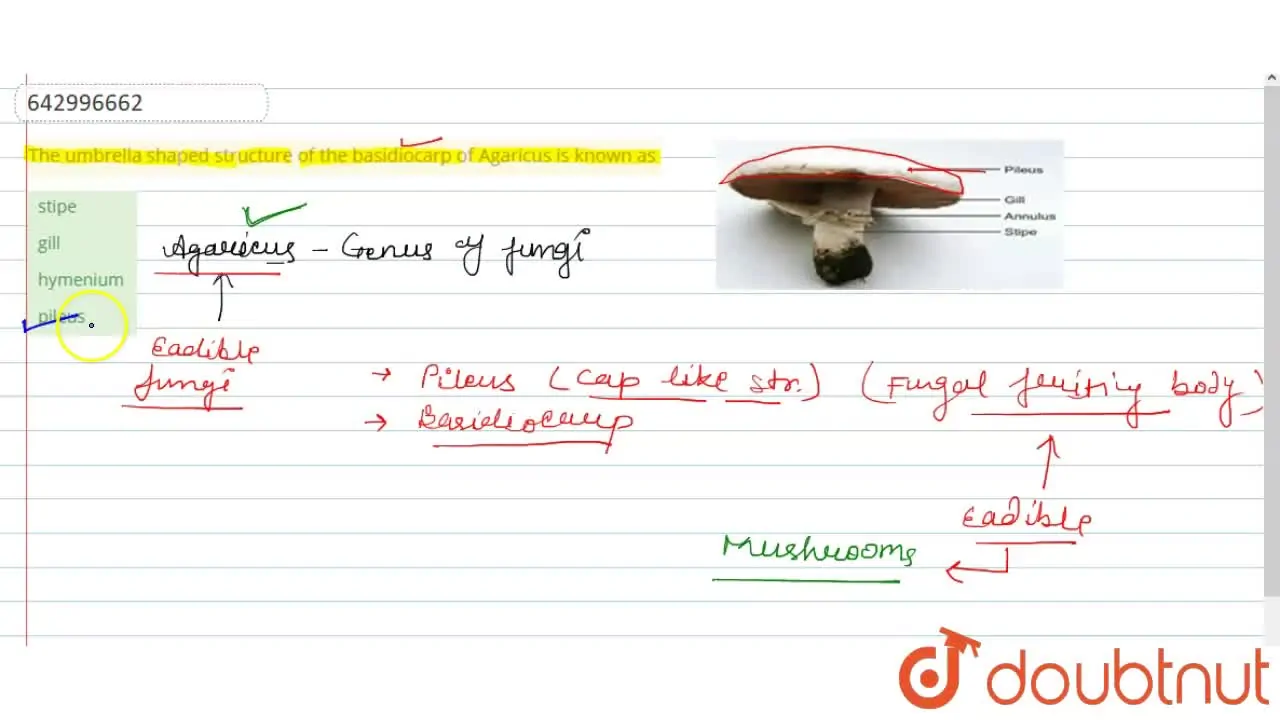 642996662
The umbrella shaped structure of the basidiocarp of Agaricus is known as
stipe
gill
hymenium
pileus
Pileus
Gill
Annulus
Stipe
Agaricus - Genus of fungi
Eadible
fungi
→ Pileus (Cap like str.) (Fungal fruitiy body)
→ Basidiocarp
Eadible
Mushrooms
doubtnut